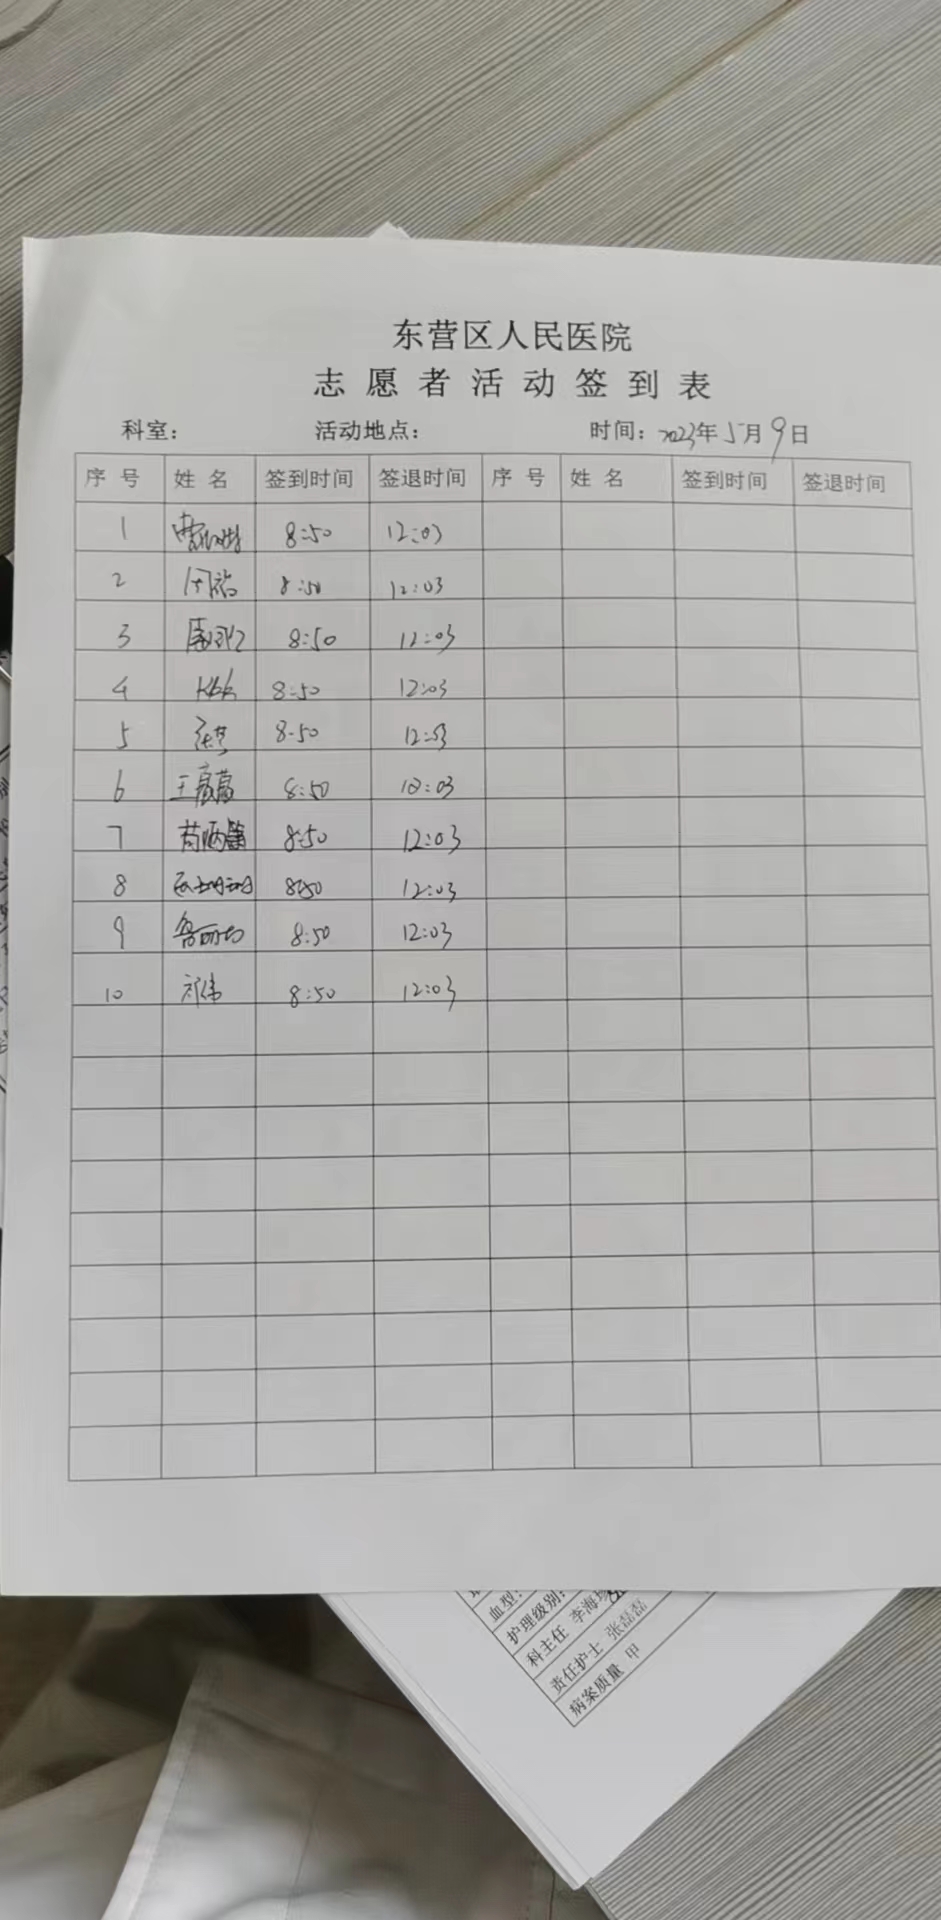 东营区人民医院
志愿者活动签到表
科室： 活动地点： 时间：2023年5月9日
序号 姓名 签到时间 签退时间 序号 姓名 签到时间 签退时间
1 8:50 12:03
2 8:50 12:03
3 8:50 12:03
4 8:50 12:03
5 8:50 12:03
6 王 8:50 12:03
7 8:50 12:03
8 8:50 12:03
9 8:50 12:03
10 8:50 12:03
血型：
护理级别：
科主任 李海
责任护士 张磊磊
病案质量 甲